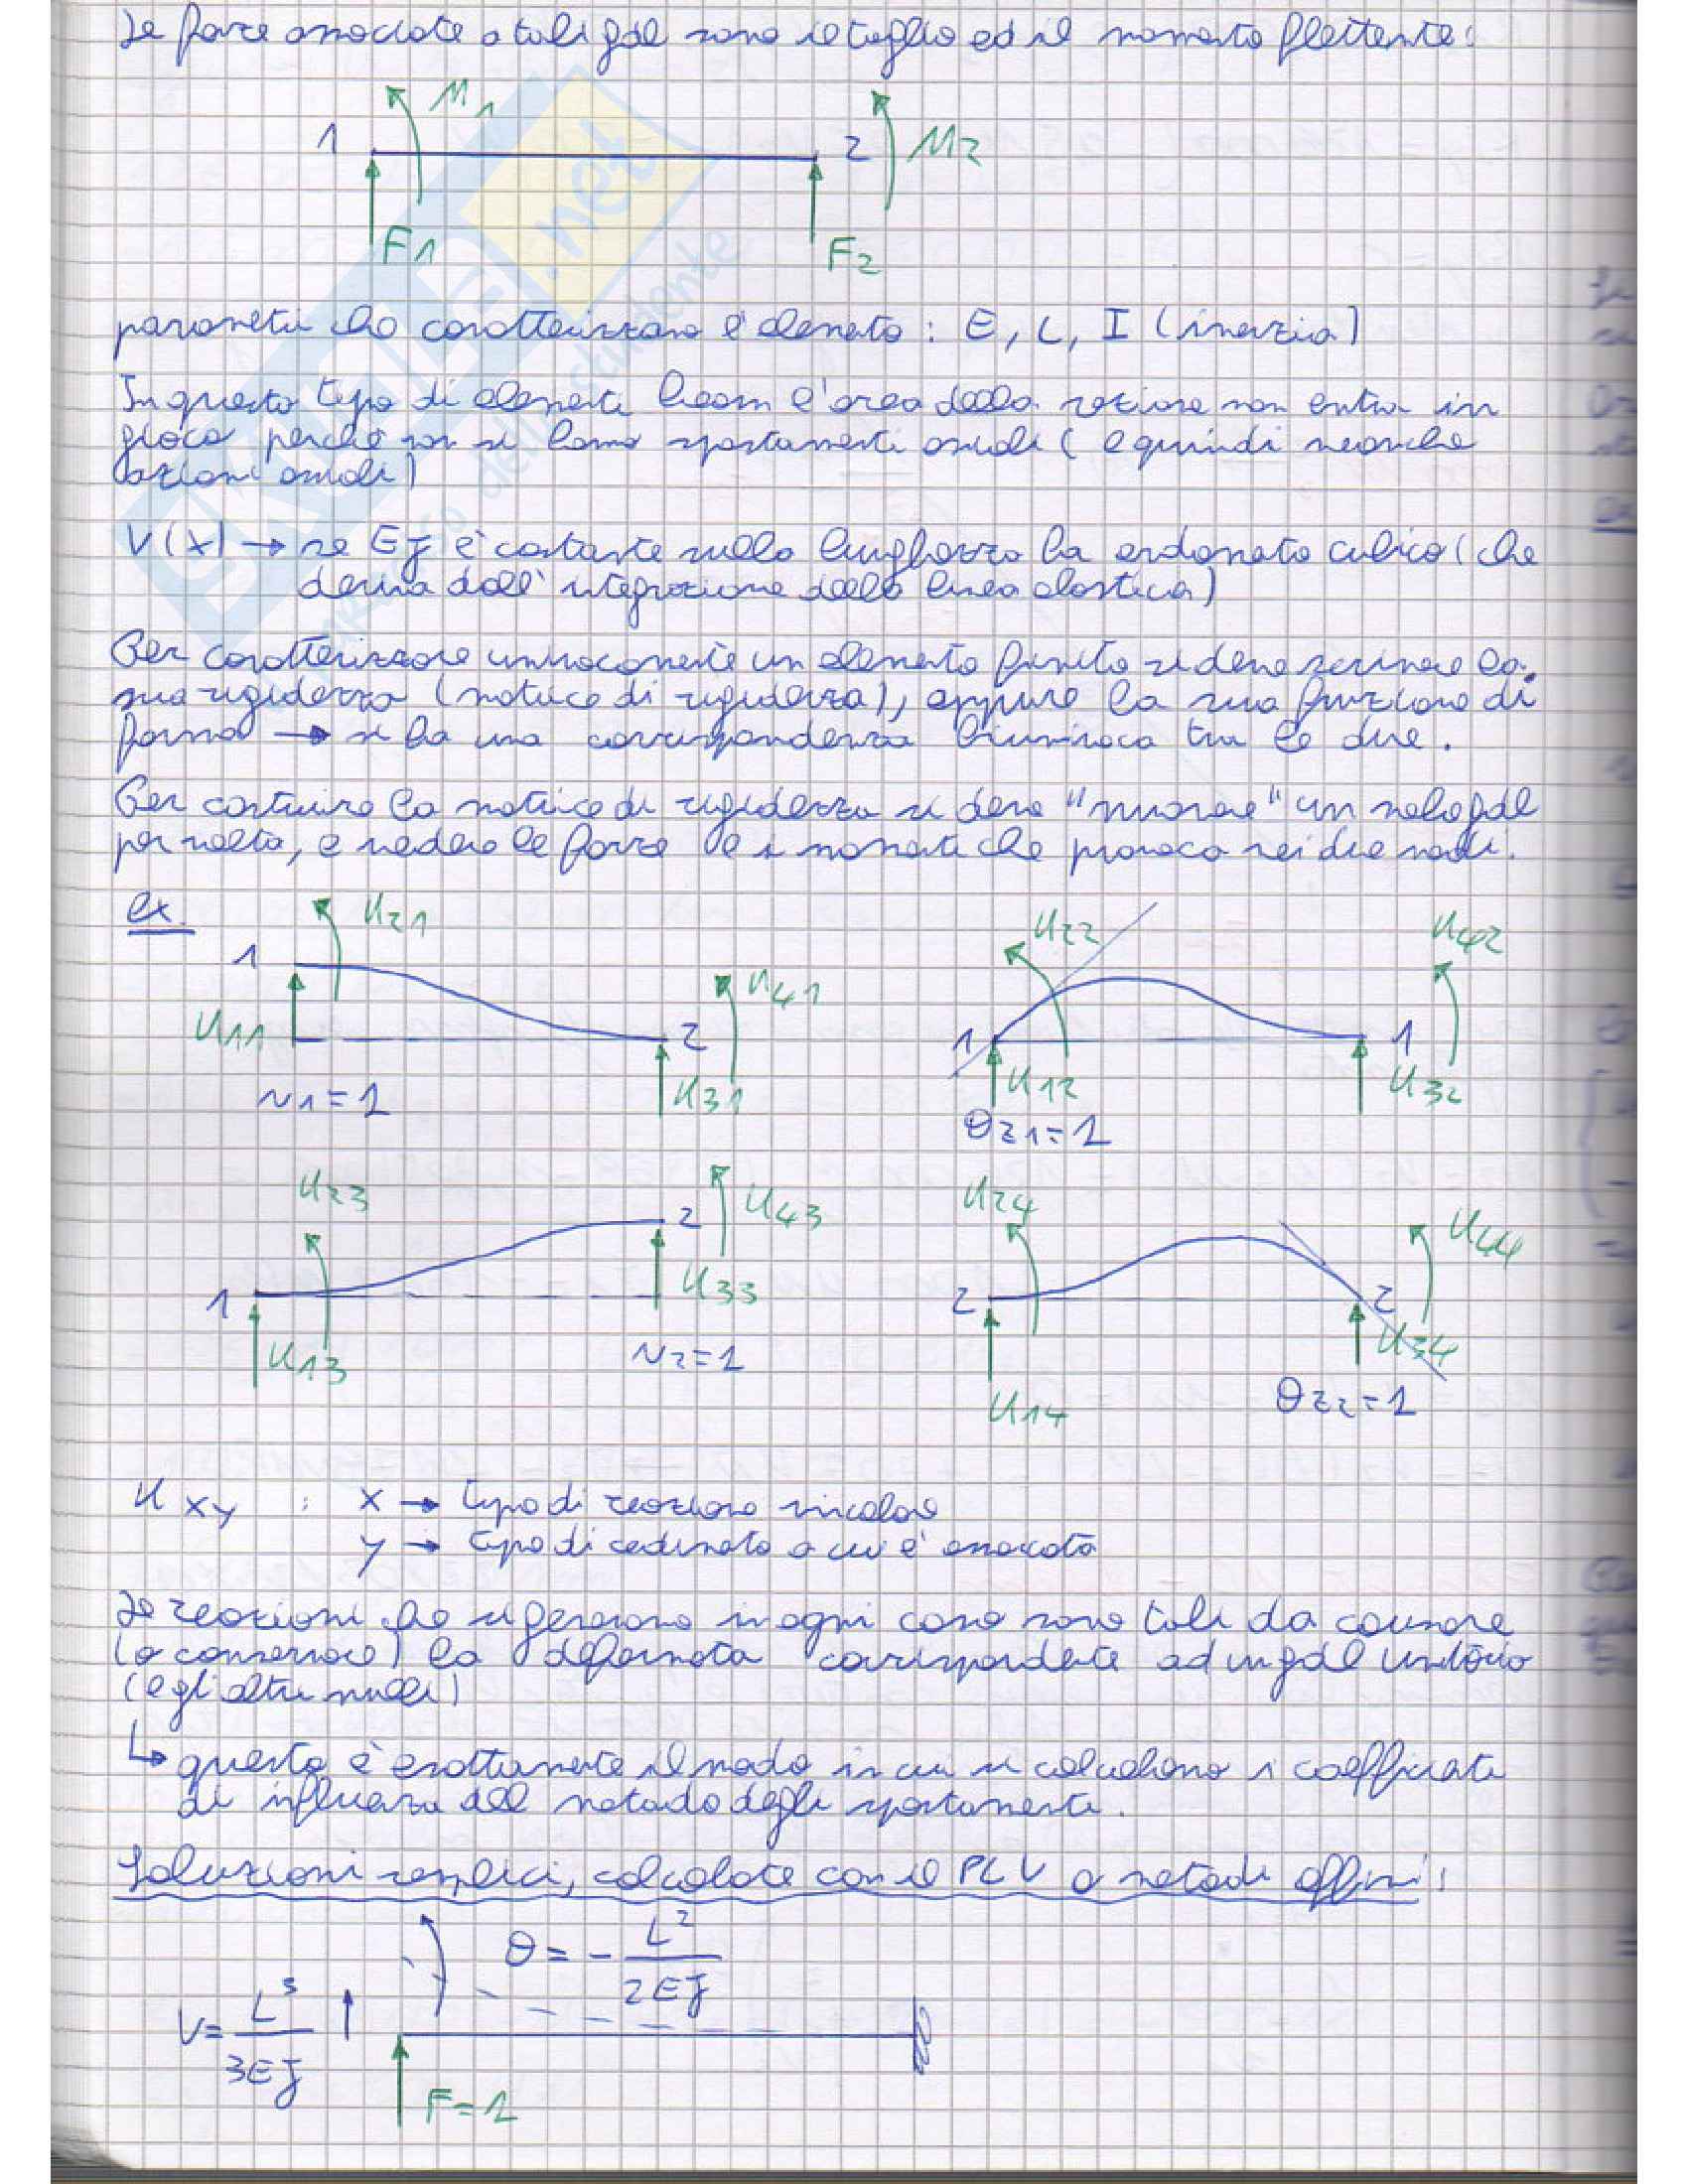 Le forze associate a tali gdl sono il taglio ed il momento flettente:
M1
M2
1
2
F1
F2
parametri che caratterizzano l'elemento: E, L, I (inerzia)
In questo tipo di elementi beam l'area della sezione non entra in
gioco perché non si hanno spostamenti assiali (e quindi neanche
azioni assiali)
V(x) → se EJ è costante sulla lunghezza ha andamento cubico (che
deriva dall'integrazione della linea elastica)
Per caratterizzare univocamente un elemento finito si deve scrivere la
sua rigidezza (matrice di rigidezza), oppure la sua funzione di
forma → si ha una corrispondenza biunivoca tra le due.
Per costruire la matrice di rigidezza si deve "muovere" un solo gdl
per volta, e vedere le forze e i momenti che provoca nei due nodi.
ex.
K21
1
K11
K41
2
K31
v1=1
K22
K42
1
1
K12
K32
θz1=1
K23
K43
2
K33
1
K13
v2=1
K24
K44
2
2
K34
K14
θz2=1
K xy : x → tipo di reazione vincolare
y → tipo di cedimento a cui è associata
Le reazioni che si generano in ogni caso sono tali da causare
(o conservare) la deformata corrispondente ad un gdl unitario
(e gli altri nulli)
↳ questo è esattamente il modo in cui si calcolano i coefficienti
di influenza del metodo degli spostamenti.
Soluzioni semplici, calcolate con il PLV o metodi affini:
θ = - L² / 2EJ
V = L³ / 3EJ
F=1
ekula.net